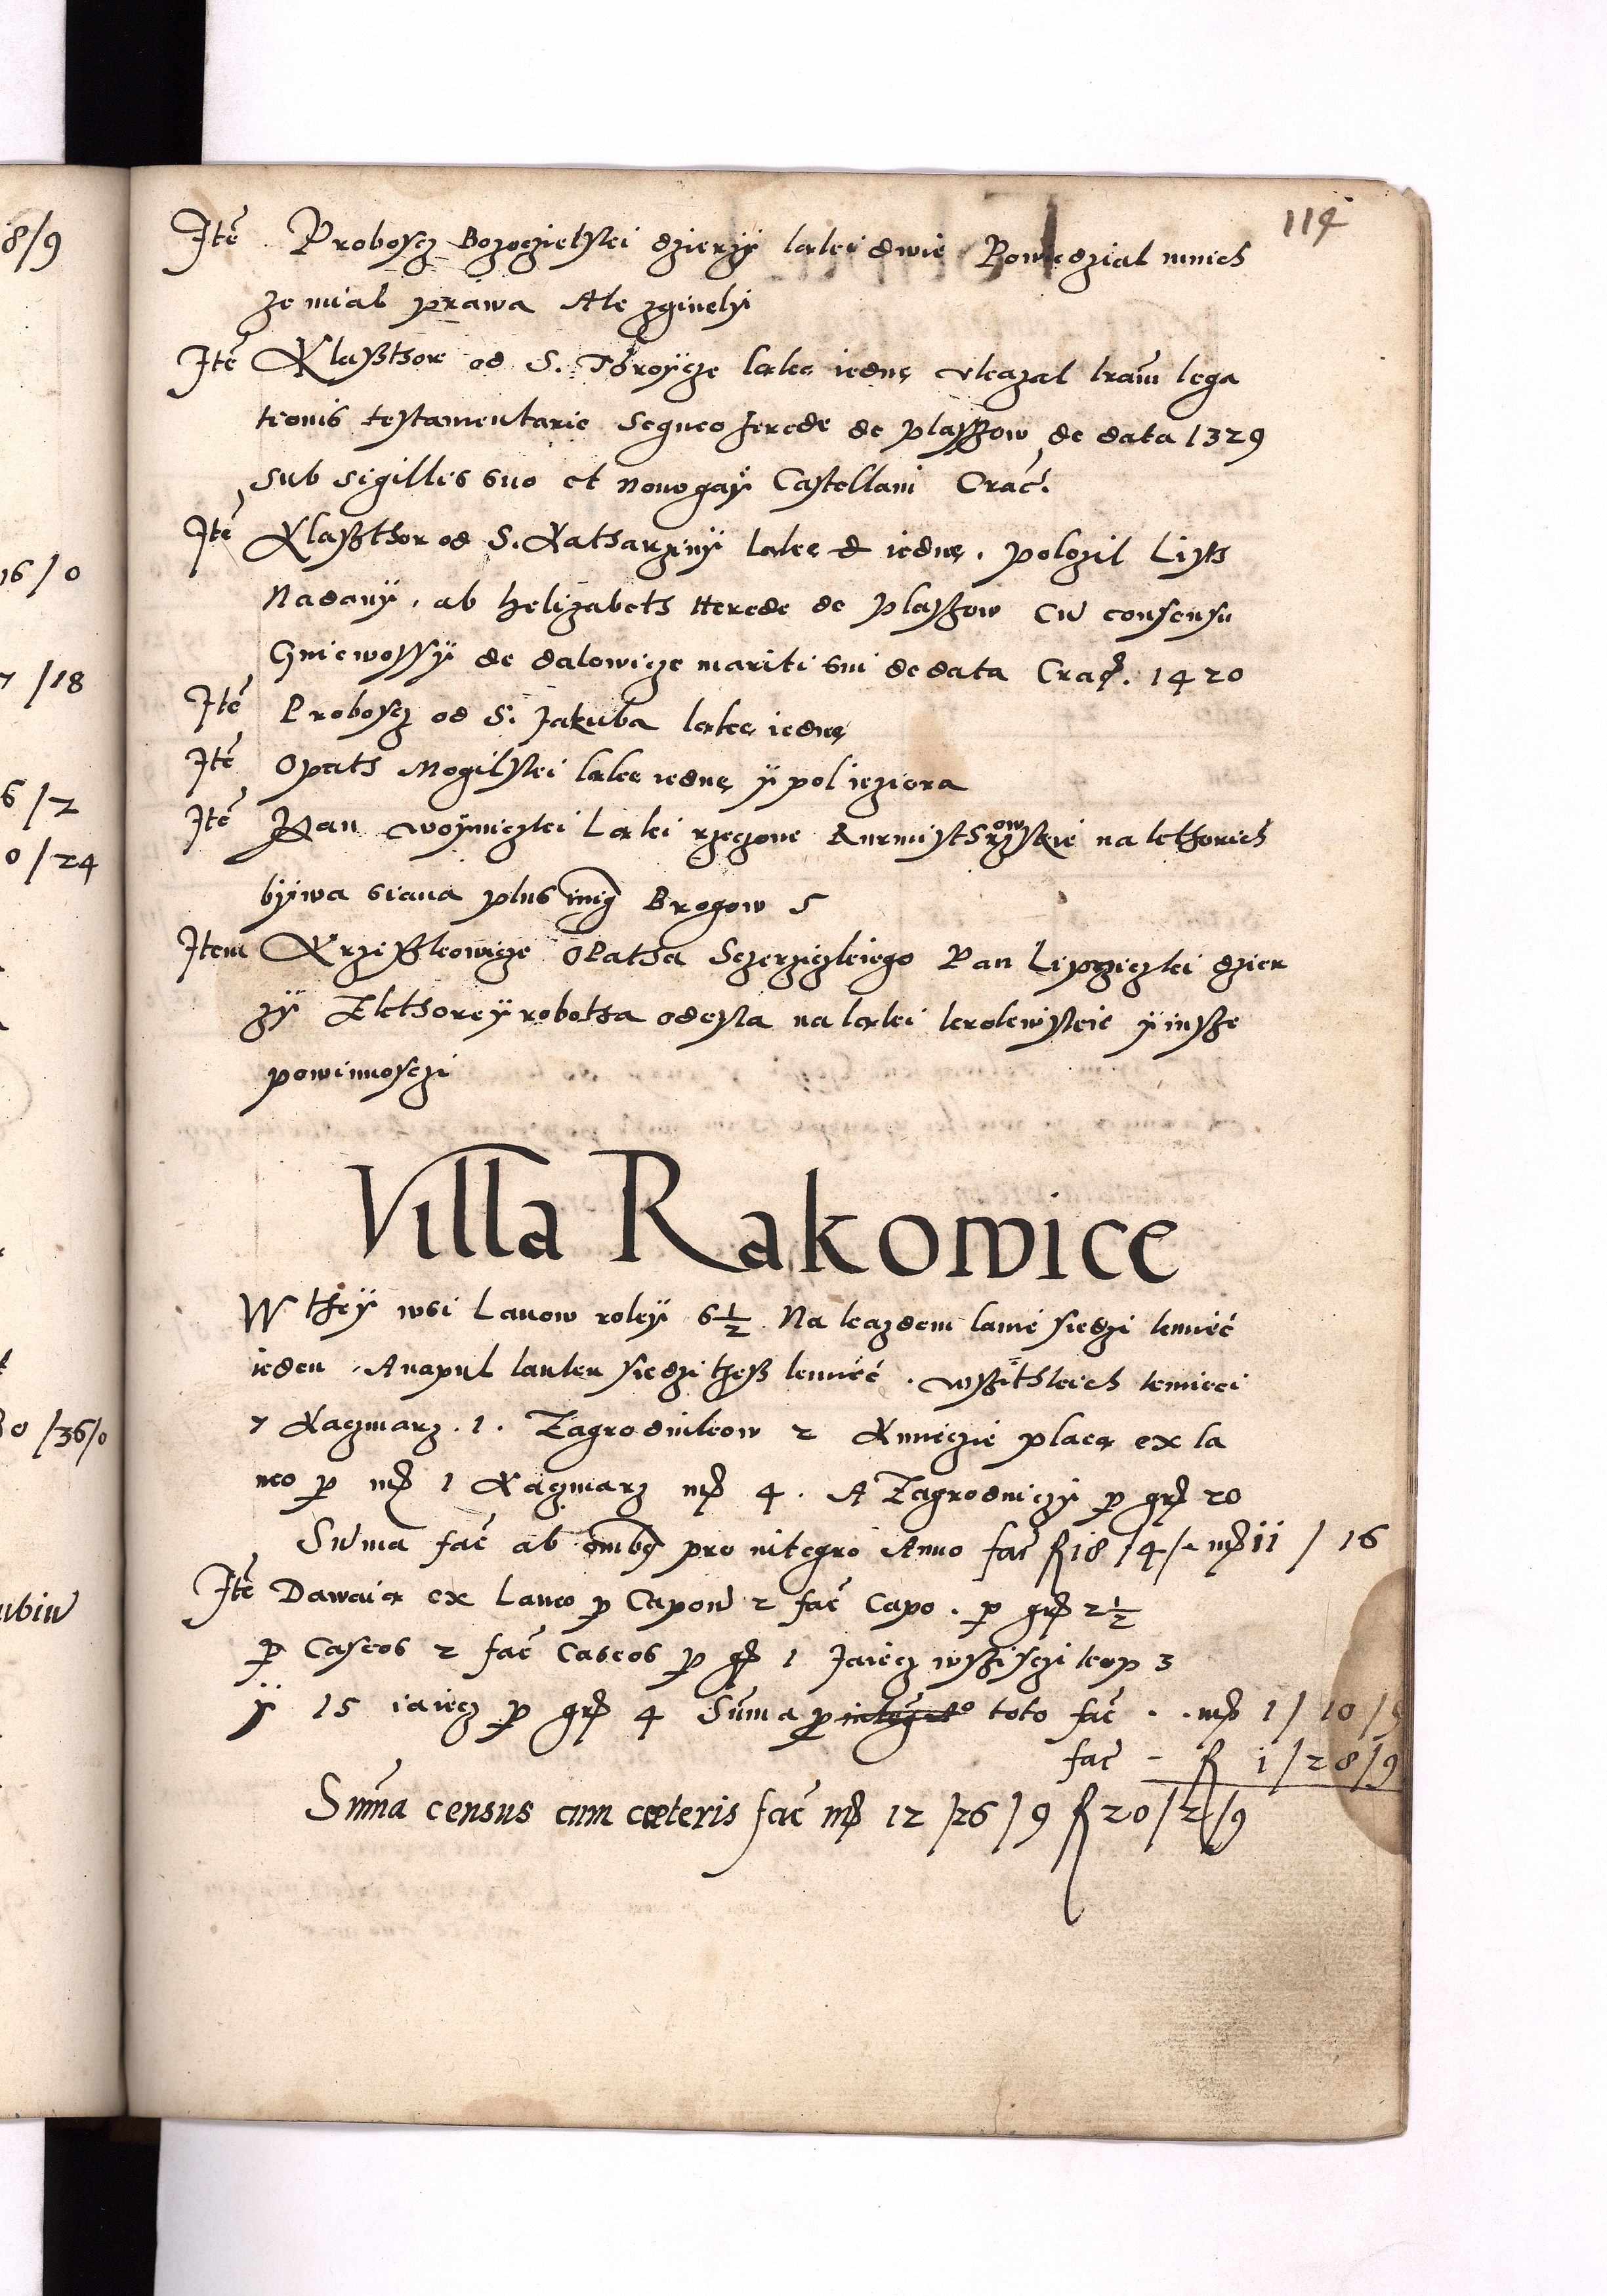 114
Ite͂ Proboscz Bozoczielski dzierzÿ laki dwie Powiedzial mnich
ze mial prawa Ale zginelÿ
Ite͂ Klasthor od S. Throÿcze lake iedne vkazal lram lega
tionis testamentarie Segneo herede de plassow de data 1329
sub sigillis suo et Novogaÿ Castellani Crac.
Ite͂ Klaszthor od S. Katharzinÿ lake d iedne. polozil Listh
Nadanÿ, ab helizabeth Herede de plaszow Cu͂ consensu
Gniewossÿ de dalowicze mariti sui de data Crac. 1420
Ite͂ Proboscz od S. Jakuba lake iedne
Ite͂ Opath Mogilski lake iedne ÿ pol ieziora
Ite͂ Pan woÿniczki Laki rzeczone Kurmisthrzowskie na kthorich
bÿwa siana plus Brogow 5
Item Krziszkowicze Opatha Sczerziczkiego Pan Lipniczki dzier
zÿ Z kthoreÿ robotha odesla na laki krolewskie ÿ insze
powinnosczi
Villa Rakowice
W theÿ wsi Lanow roleÿ 6 1/2 Na kazdem lanie siedzi kmiec
ieden. A na pul lanku siedzi thesz kmiec. wszithkich kmieci
7 Kaczmarz. 1. Zagrodnikow 2 Kmieczie placa ex la
neo p mr 1 Kaczmarz mr 4. A Zagrodniczÿ p gr 20
Su͂ma fac ab pro integro Anno fac fl 18 /4/ - mr 11 / 16
Ite͂ Dawaia ex Laneo p Capon 2 fac Capo. p gr 2 1/2
p Caseos 2 fac Caseos p gr 1 Jaiecz wszisczi kop 3
ÿ 15 iaiecz p gr 4 Su͂ma p integro toto fac . . mr 1/ 10 /9
fac - fl 1 / 28 /9
Su͂ma census cum cæteris fac mr 12 /26 /9 fl 20 /2/9
8/9
16/0
7/18
6/2
0/24
0/36/0